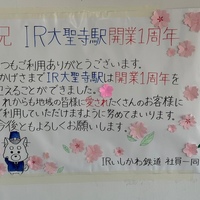 祝 IR大聖寺駅開業1周年
いつもご利用ありがとうございます。
おかげさまでIR大聖寺駅は開業1周年を
迎えることができました。
これからも地域の皆様に愛されたくさんのお客様に
ご利用していただけますように努めてまいります。
今後ともよろしくお願いします。
IRいしかわ鉄道 社員一同